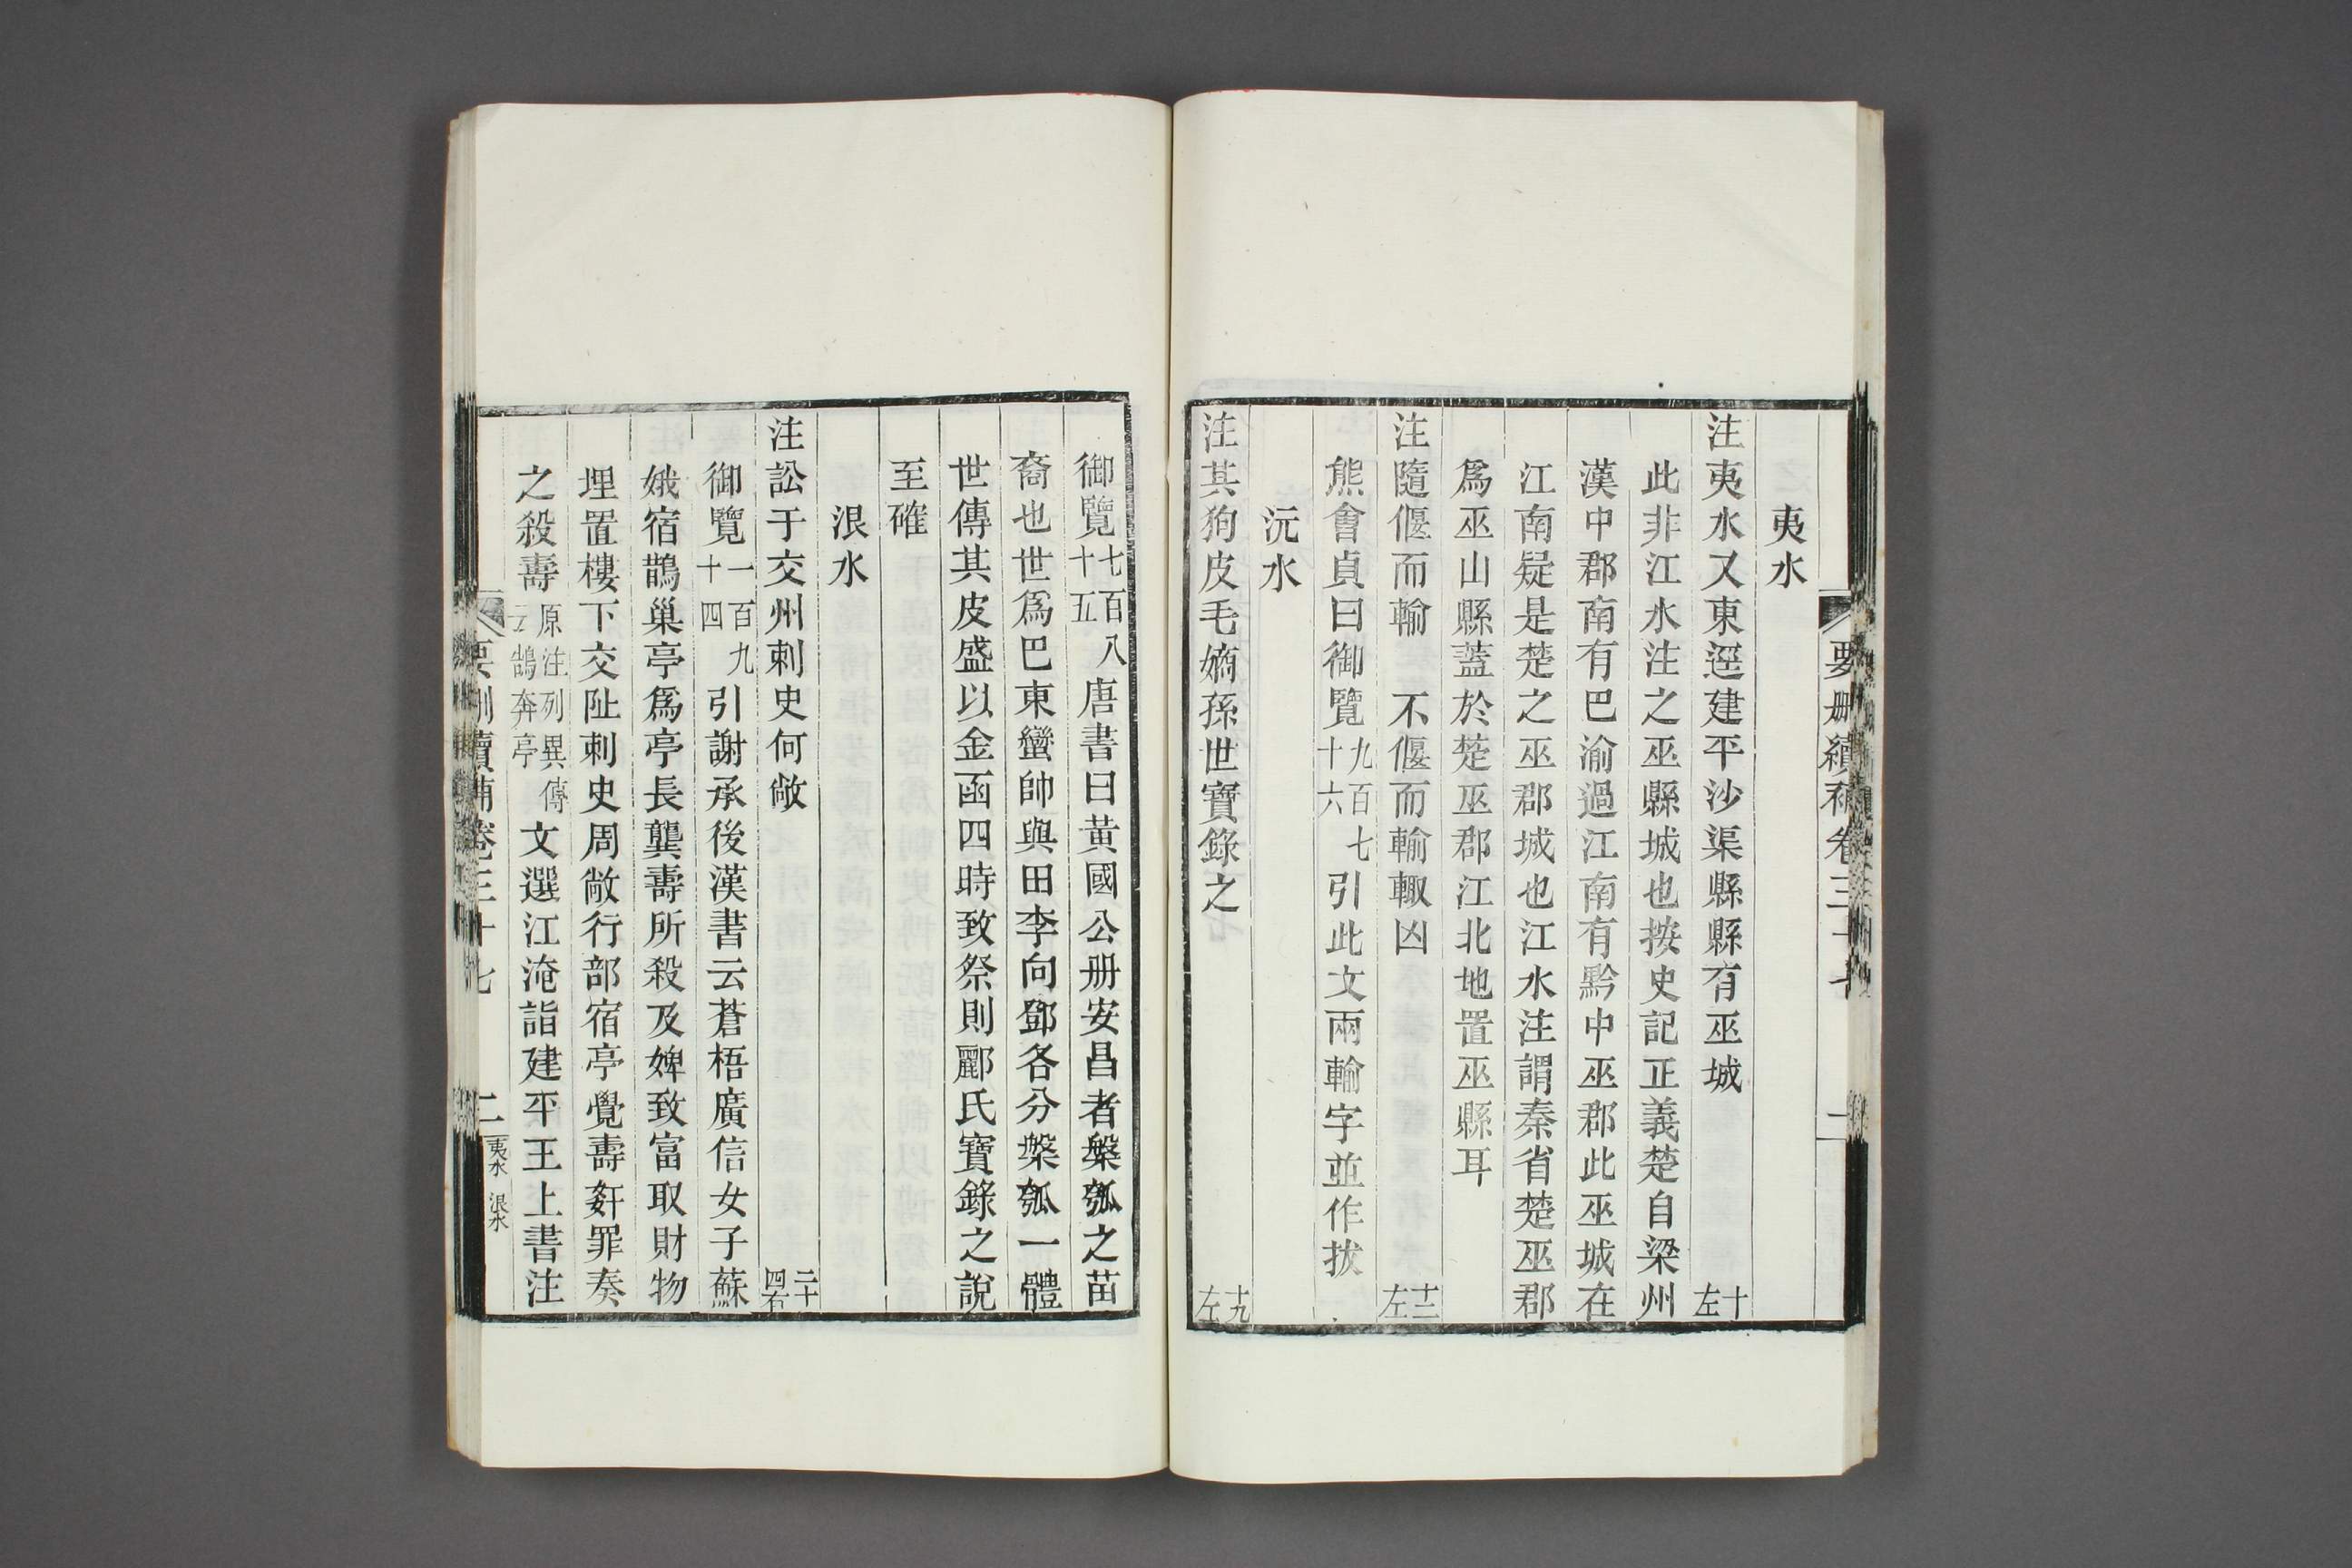 夷水
注夷水又東逕建平沙渠縣縣有巫城十左
此非江水注之巫縣城也按史記正義楚自梁州
漢中郡南有巴渝過江南有黔中巫郡此巫城在
江南疑是楚之巫郡城也江水注謂秦省楚巫郡
爲巫山縣蓋於楚巫郡江北地置巫縣耳
注隨偃而輸　不偃而輸輙凶十二左
熊會貞曰御覽九百七十六引此文兩輸字並作拔
沅水
注其狗皮毛嫡孫世寶錄之十九左
御覽七百八十五唐書曰黃國公册安昌者槃瓠之苗
裔也世爲巴東蠻帥與田李向鄧各分槃瓠一體
世傳其皮盛以金函四時致祭則酈氏寶錄之說
至確
泿水
注訟于交州刺史何敞二十四右
御覽一百九十四引謝承後漢書云蒼梧廣信女子蘇
娥宿鵲巢亭爲亭長龔壽所殺及婢致富取財物
埋置樓下交阯刺史周敞行部宿亭覺壽姧罪奏
之殺壽原注列異傳云鵠奔亭文選江淹詣建平王上書注
要刪續補卷三十七　二　夷水　泿水